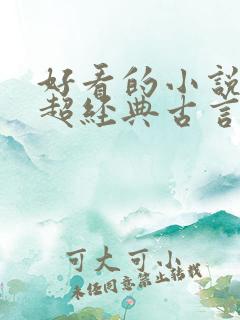 好看的小說
超經典古言
可大可小
未經同意禁止轉載